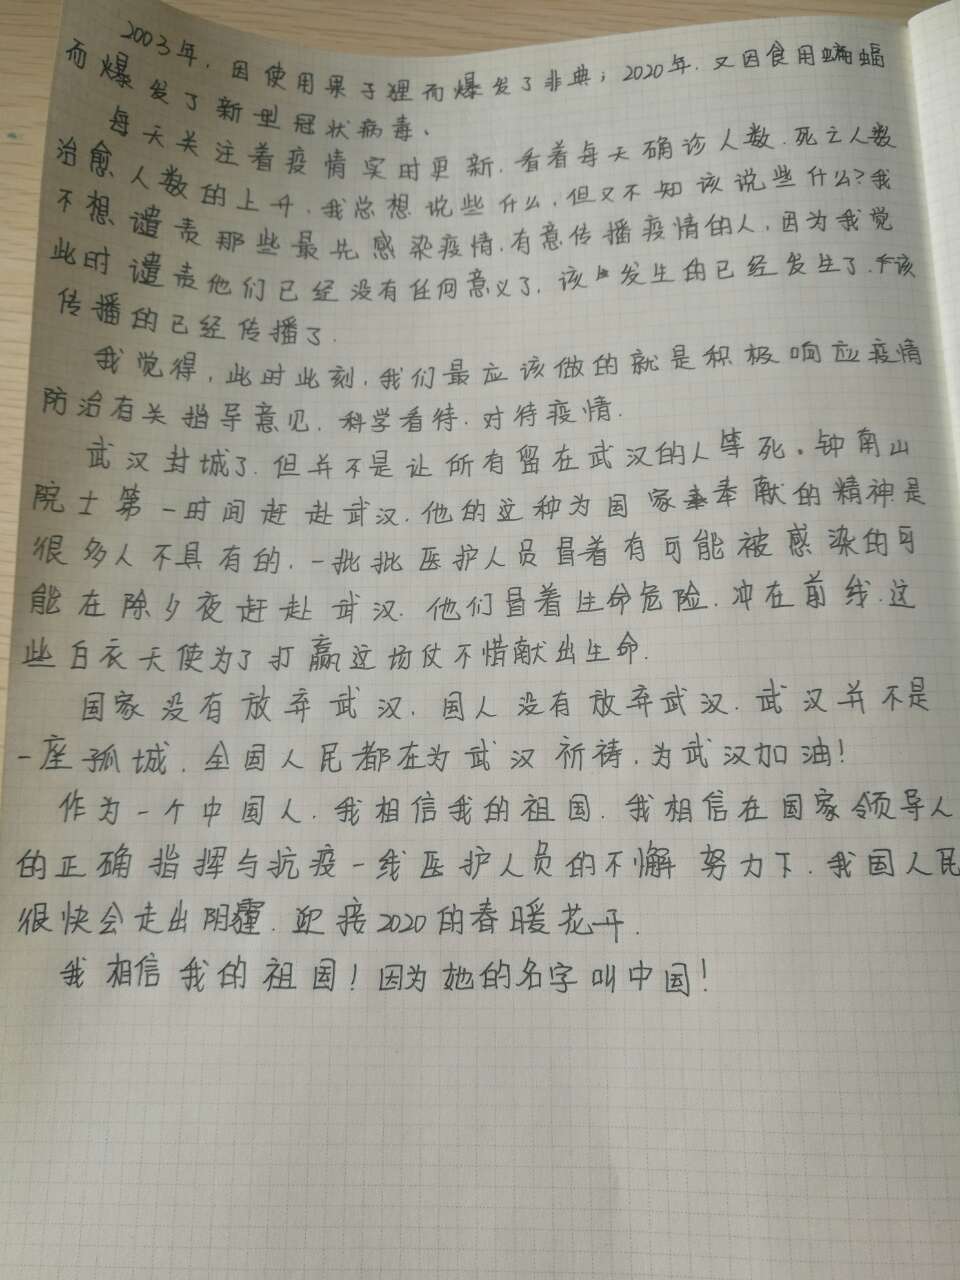 2003年，因使用果子狸而爆发了非典；2020年，又因食用蝙蝠
而爆发了新型冠状病毒、
每天关注着疫情实时更新，看着每天确诊人数、死亡人数
治愈人数的上升，我总想说些什么，但又不知该说些什么？我
不想谴责那些最先感染疫情，有意传播疫情的人，因为我觉
此时谴责他们已经没有任何意义了，该发生的已经发生了，不该
传播的已经传播了．
我觉得，此时此刻，我们最应该做的就是积极响应疫情
防治有关指导意见，科学看待，对待疫情．
武汉封城了，但并不是让所有留在武汉的人等死。钟南山
院士第一时间赶赴武汉，他的这种为国家奉献的精神是
很多人不具有的，一批批医护人员冒着有可能被感染的可
能在除夕夜赶赴武汉，他们冒着生命危险，冲在前线，这
些白衣天使为了打赢这场仗不惜献出生命．
国家没有放弃武汉，国人没有放弃武汉，武汉并不是
一座孤城，全国人民都在为武汉祈祷，为武汉加油！
作为一个中国人，我相信我的祖国，我相信在国家领导人
的正确指挥与抗疫一线医护人员的不懈努力下，我国人民
很快会走出阴霾，迎接2020的春暖花开．
我相信我的祖国！因为她的名字叫中国！